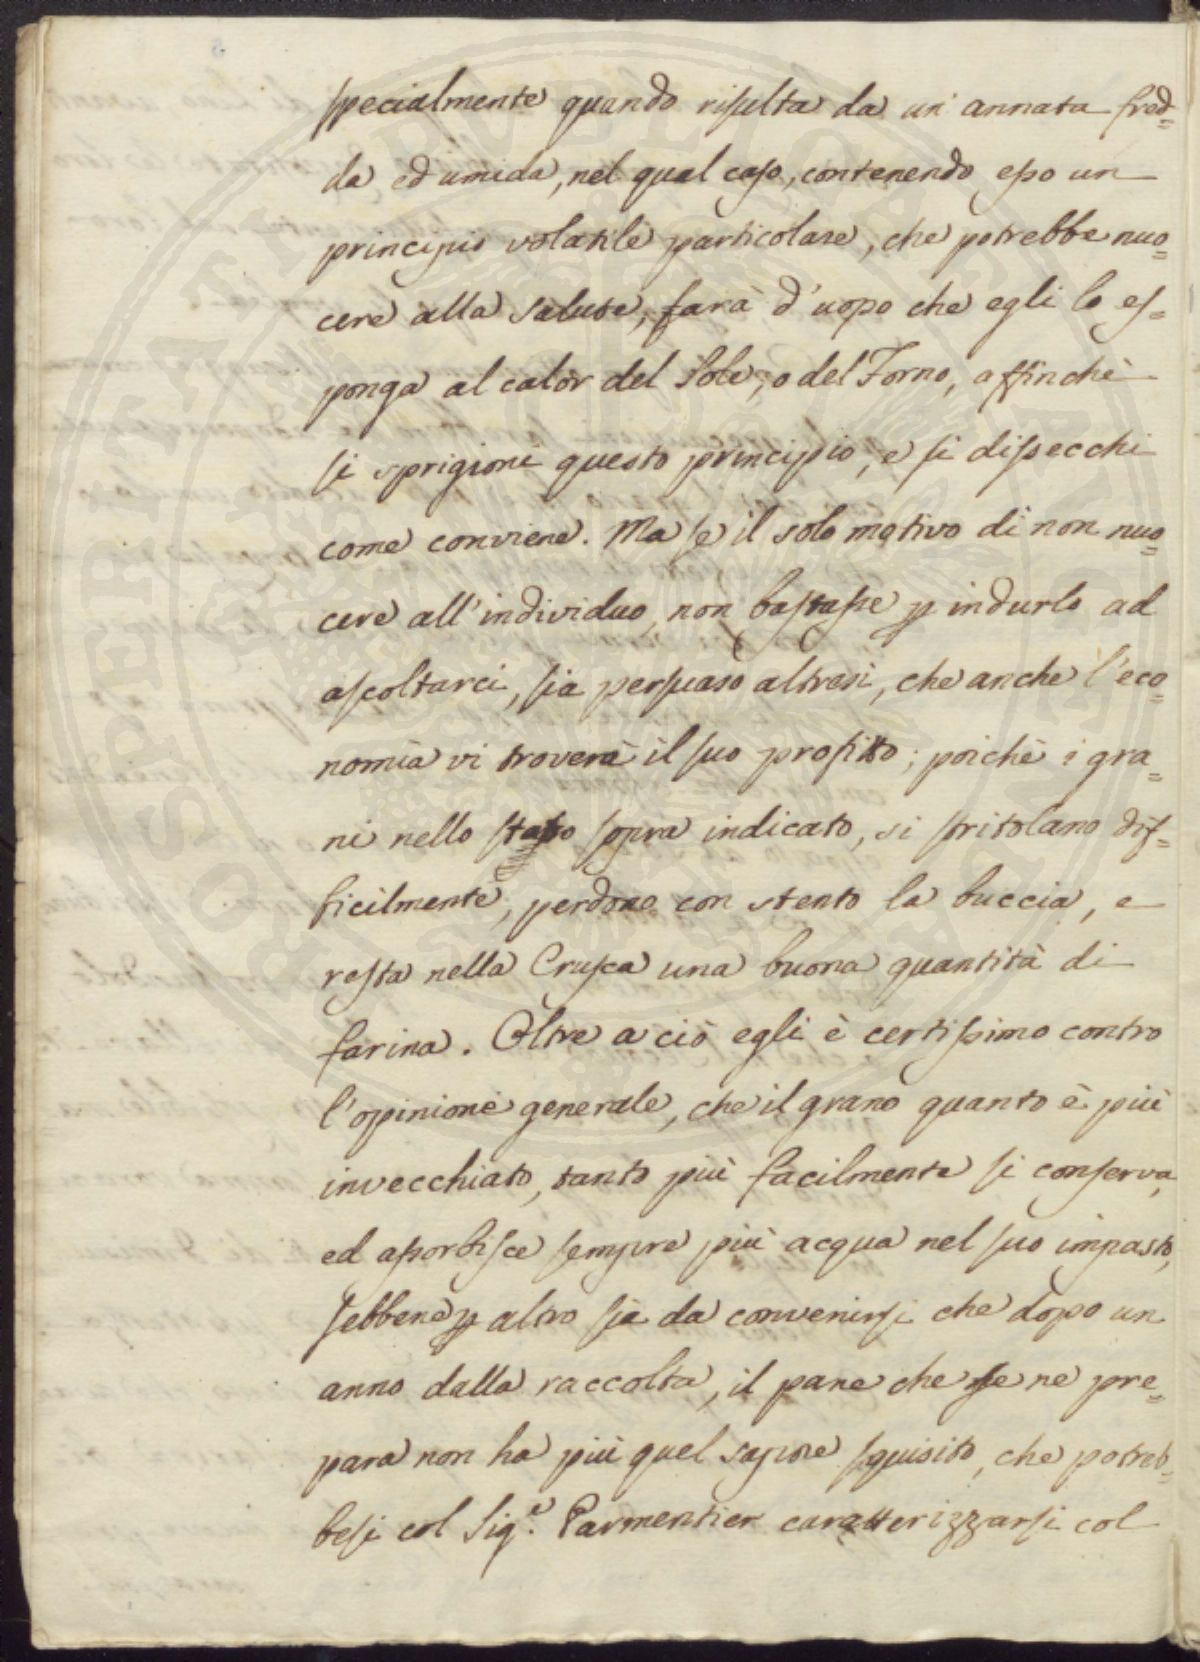 specialmente quando risulta da un' annata fred=
da ed umida, nel qual caso, contenendo esso un
principio volatile particolare, che potrebbe nuo=
cere alla salute, farà d'uopo che egli lo es=
ponga al calòr del Sole, o del Forno, affinchè
si sprigioni questo principio, e si dissecchi
come conviene. Ma se il solo motivo di non nuo=
cere all'individuo non bastasse p indurlo ad
ascoltarci, sia persuaso altresì, che anche l'eco=
nomìa vi troverà il suo profitto; poichè i gra=
ni nello stato sopra indicato, si stritolano dif=
ficilmente, perdono con stento la buccia, e
resta nella Crusca una buona quantità di
farina. Oltre a ciò egli è certissimo contro
l'opinione generale, che il grano quanto è più
invecchiato, tanto più facilmente si conserva,
ed assorbisce sempre più acqua nel suo impasto,
sebbene p altro sia da convenirsi che dopo un
anno dalla raccolta, il pane che se ne pre=
para non ha più quel sapore squisito, che potreb=
besi col Sig.e Parmentier caratterizzarsi col
PROSPERITATI PUBLICAE AUGENDAE